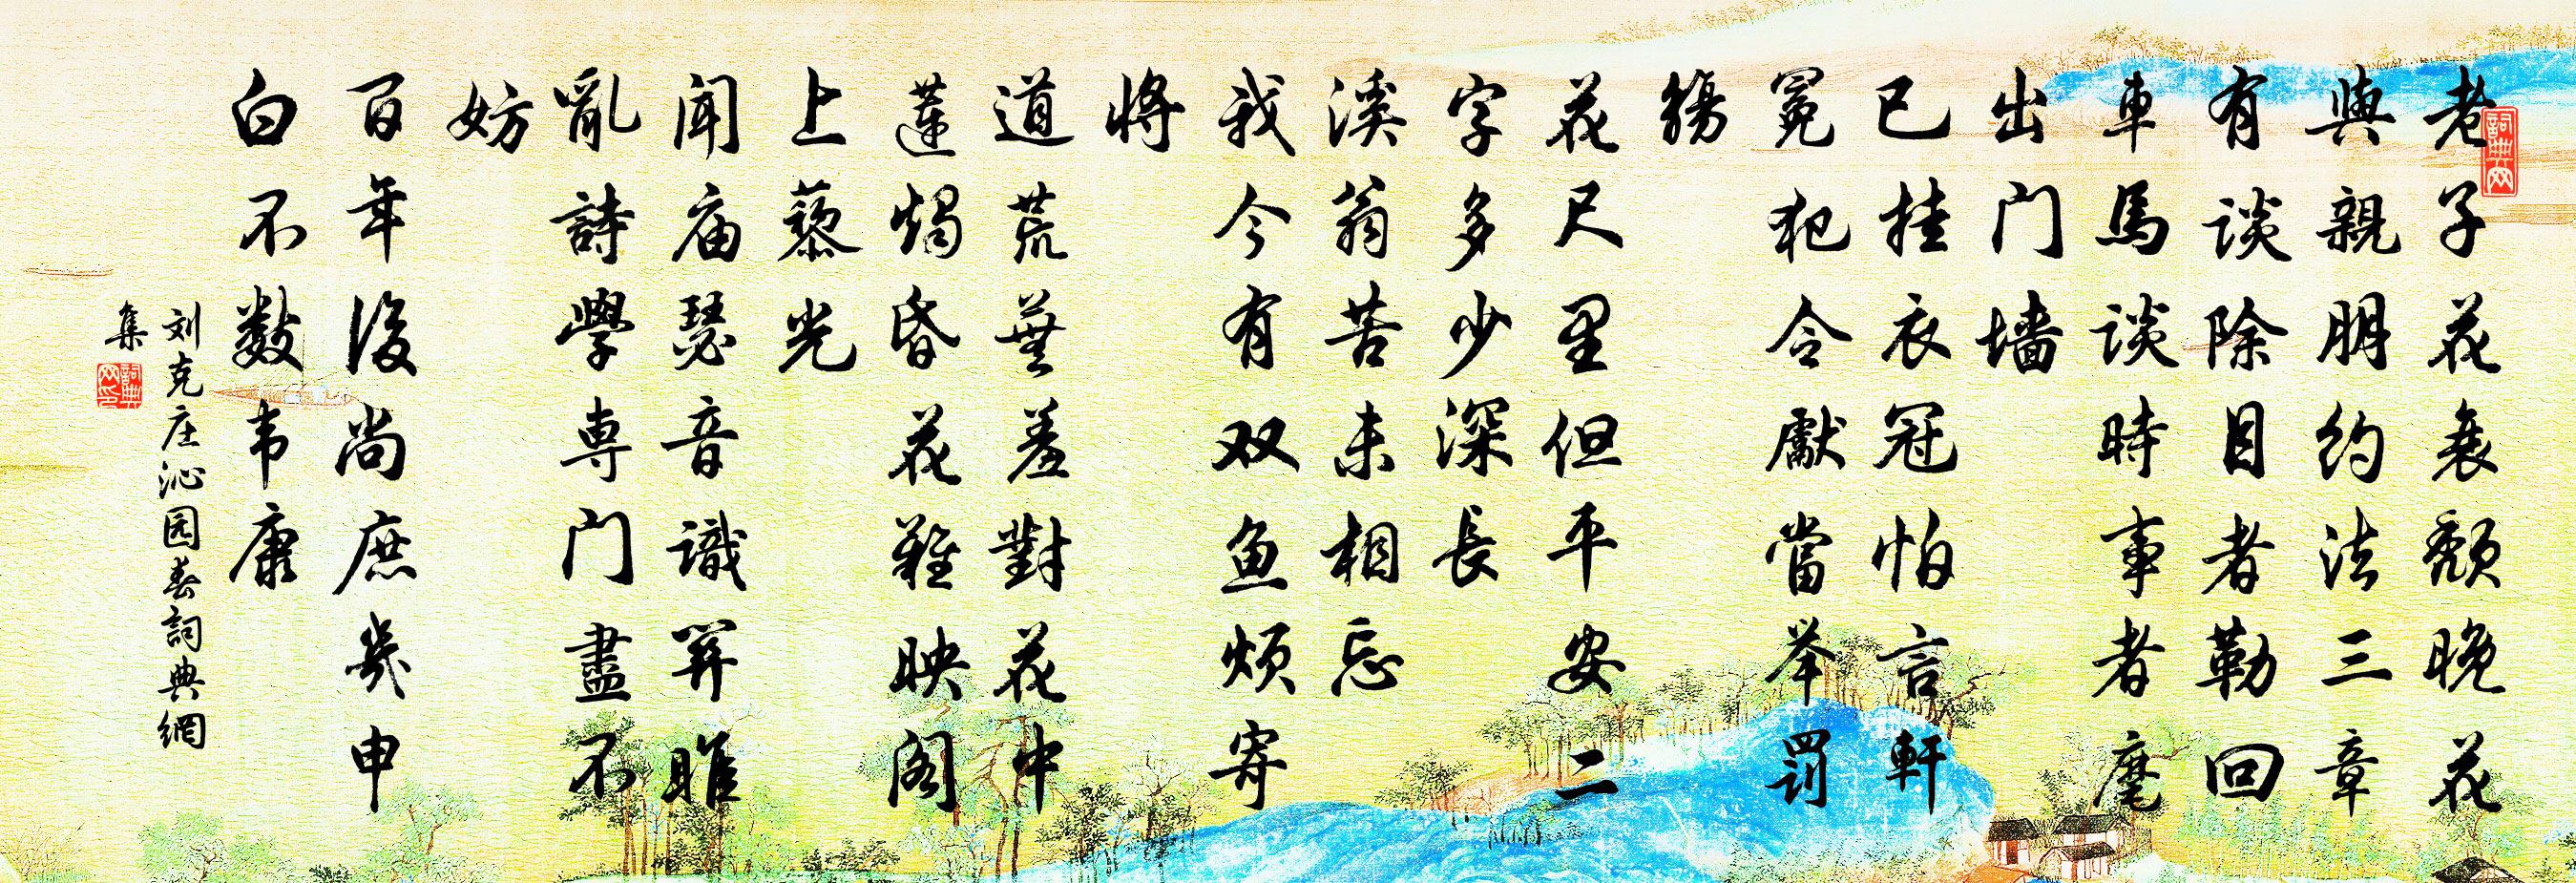 詞典网
老子花衰颓晚花
與親朋约法三章
有谈除目者勒回
車馬谈時事者麾
出门墙
已挂衣冠怕言軒
冕犯令獻當举罰
觴
花尺里但平安二
字多少深長
溪翁苦未相忘
我今有双鱼烦寄
将
道荒蕪羞對花中
蓮燭昏花難映阁
上藜光
闻庙瑟音識关雎
亂詩學専门盡不
妨
百年後尚庶幾申
白不数韦康
刘克庄沁园春詞典網
集
詞典网印